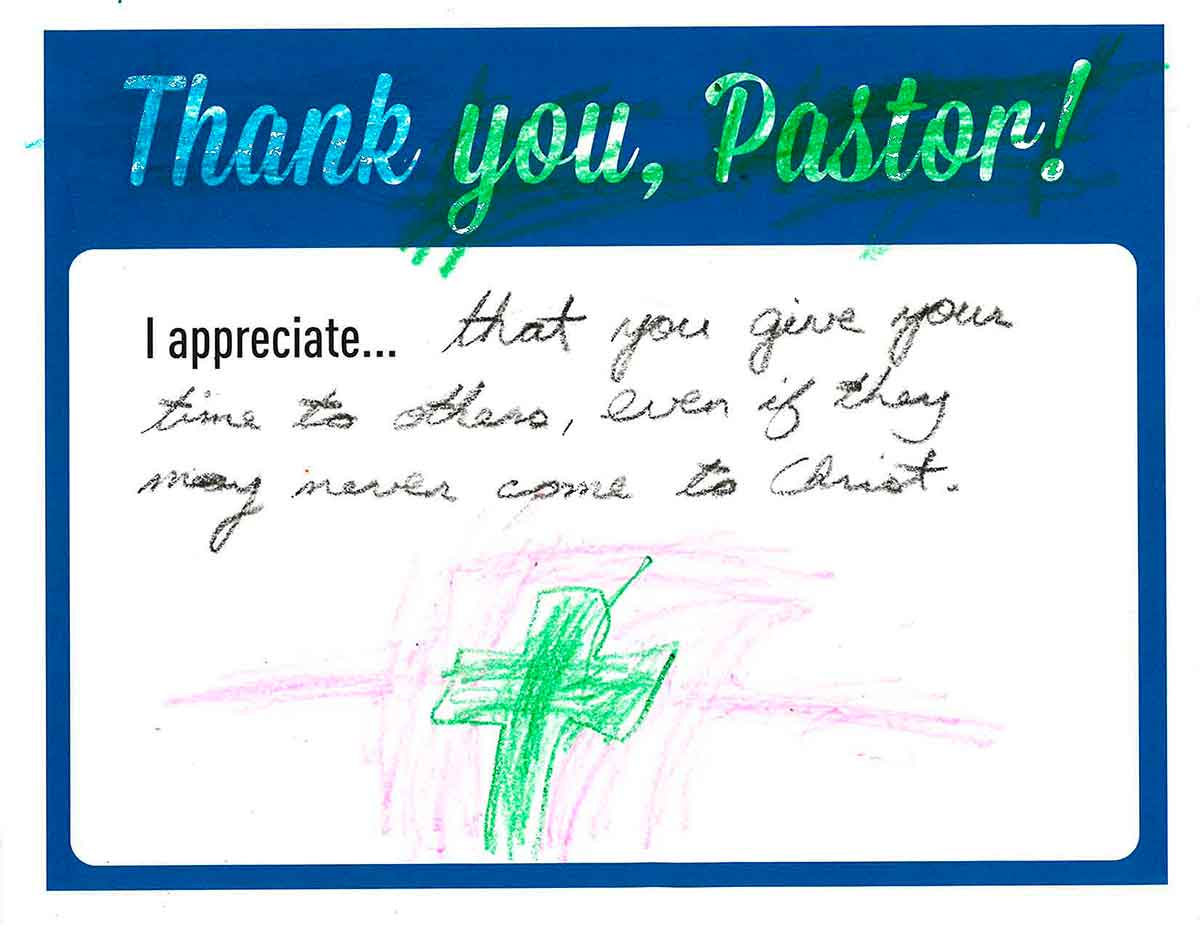 Thank you, Pastor!
I appreciate... that you give your
time to others, even if they
may never come to Christ.